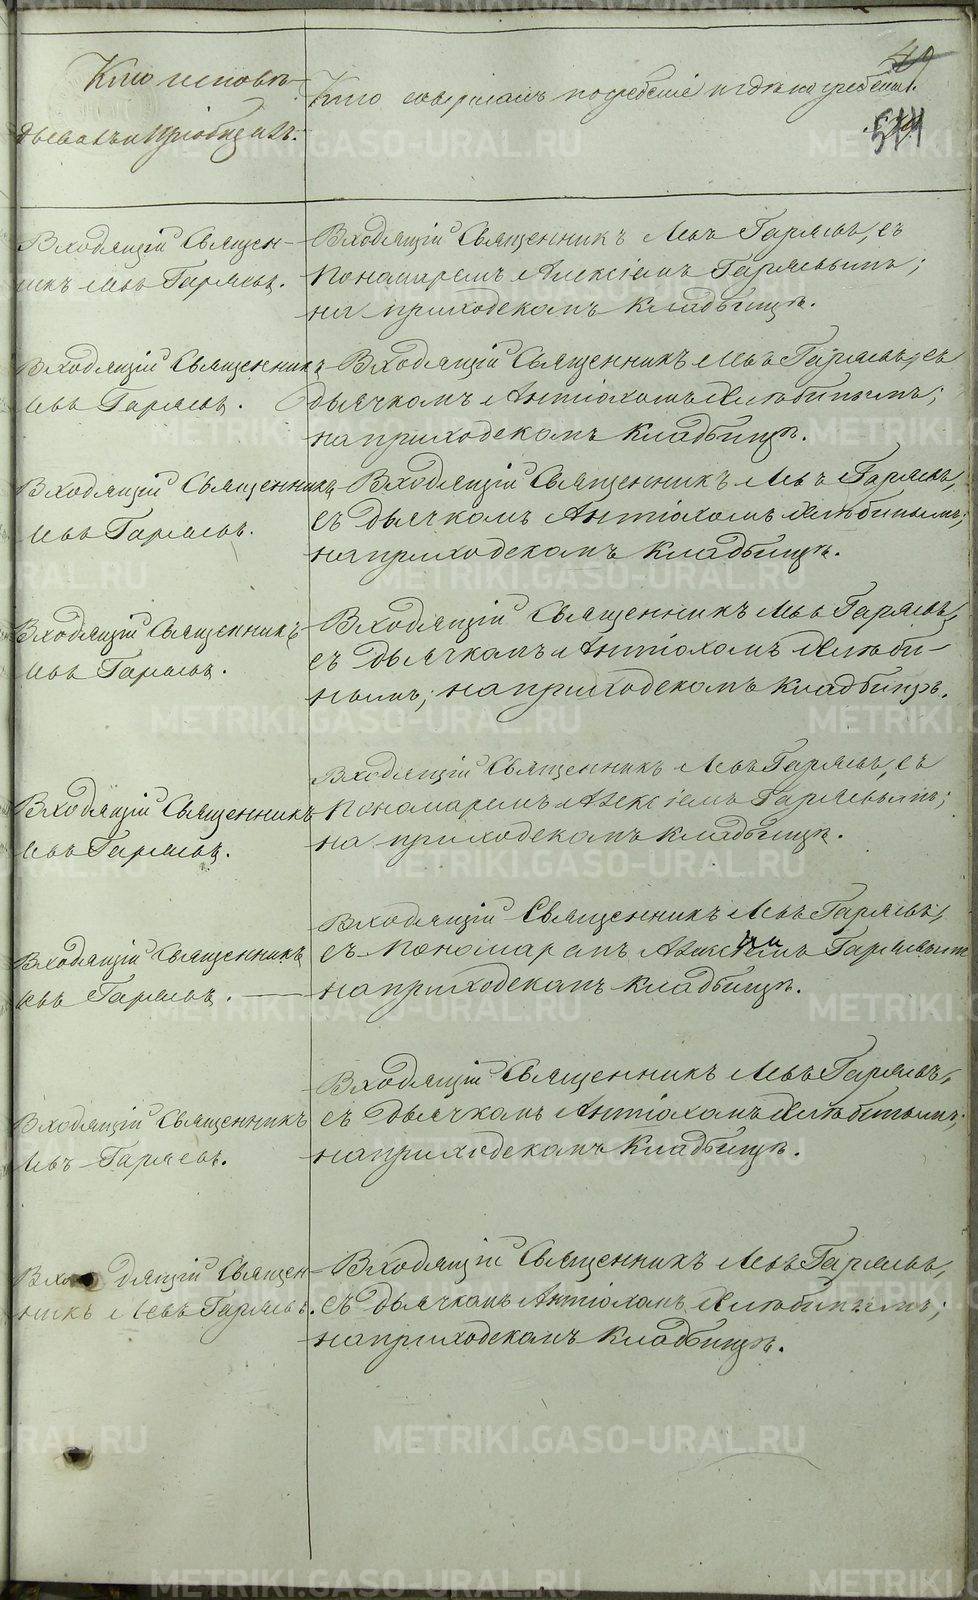 Кто исповѣ-
дывалъ и пріобщалъ.
Кто совершалъ погребеніе и гдѣ погребены.
49
514
Входящій Священ-
никъ Левъ Гаряевъ.
Входящій Священникъ Левъ Гаряевъ, съ
Пономаремъ Алексіемъ Гаряевымъ;
на приходскомъ кладбищѣ.
Входящій Священникъ
Левъ Гаряевъ.
Входящій Священникъ Левъ Гаряевъ, съ
дьячкомъ Антіохомъ Хлюбинымъ;
на приходскомъ кладбищѣ.
Входящій Священникъ
Левъ Гаряевъ.
Входящій Священникъ Левъ Гаряевъ,
съ дьячкомъ Антіохомъ Хлюбинымъ;
на приходскомъ кладбищѣ.
Входящій Священникъ
Левъ Гаряевъ.
Входящій Священникъ Левъ Гаряевъ,
съ дьячкомъ Антіохомъ Хлюби-
нымъ; на приходскомъ кладбищѣ.
Входящій Священникъ
Левъ Гаряевъ.
Входящій Священникъ Левъ Гаряевъ, съ
Пономаремъ Алексіемъ Гаряевымъ;
на приходскомъ кладбищѣ.
Входящій Священникъ
Левъ Гаряевъ.
Входящій Священникъ Левъ Гаряевъ,
съ Пономаремъ Алексіемъ Гаряевымъ
на приходскомъ кладбищѣ.
Входящій Священникъ
Левъ Гаряевъ.
Входящій Священникъ Левъ Гаряевъ,
съ дьячкомъ Антіохомъ Хлюбинымъ;
на приходскомъ кладбищѣ.
Входящій Священ-
никъ Левъ Гаряевъ.
Входящій Священникъ Левъ Гаряевъ,
съ дьячкомъ Антіохомъ Хлюбинымъ;
на приходскомъ кладбищѣ.
METRIKI.GASO-URAL.RU